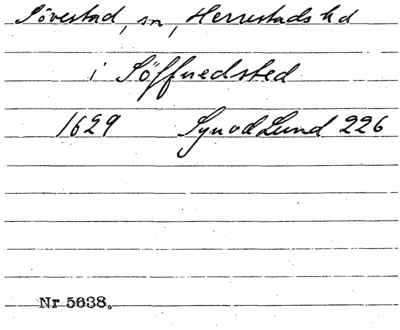 Sövestad, sn, Herrestads hd
i Söffuedsted
1629 Synod Lund 226
Nr 5638.